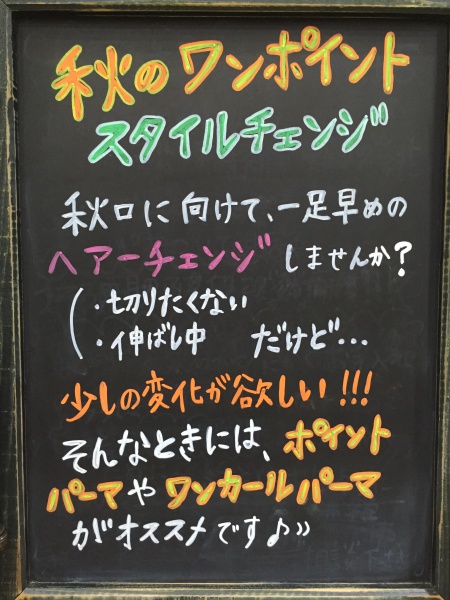 秋のワンポイント
スタイルチェンジ
秋口に向けて、一足早めの
ヘアーチェンジしませんか?
(・切りたくない
・伸ばし中 だけど…
少しの変化が欲しい!!!
そんなときには、ポイント
パーマやワンカールパーマ
がオススメです♪»